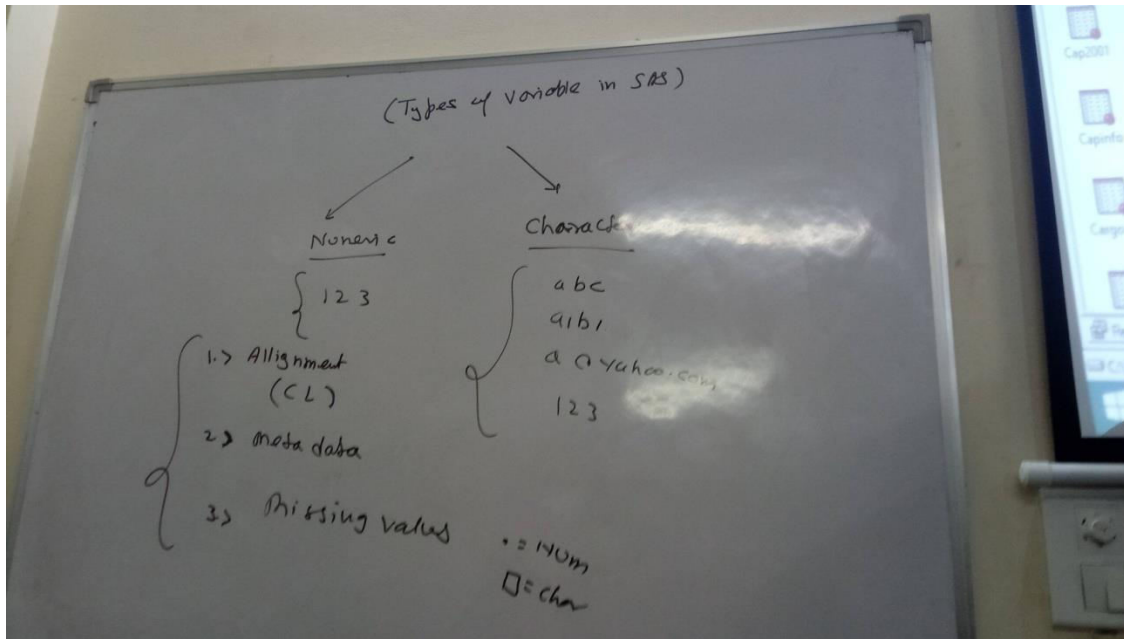 (Types of variable in SAS)
Numeric
123
Character
abc
a1b1
a@yahoo.com
123
1.> Allignment
(CL)
2> meta data
3> Missing values
. = Num
□ = char
Cap2001
Capinfo
Cargo